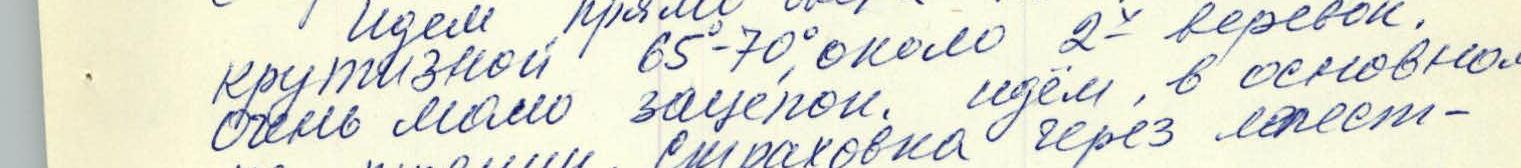 Идем прямо
крутизной 65°-70°, около 2х веревок.
очень мало зацепок. идём, в основном
страховка через лепест-